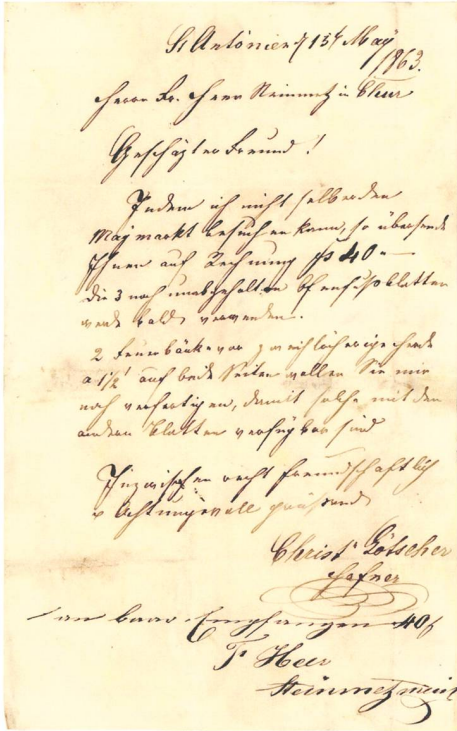 St Antönien d 13t May
1863.
Herrn Fr. Heer Steinmetz in Chur
Geschäzter Freund!
Indem ich nicht selber den
Maymarkt besuchen kann, so übersende
Ihnen auf Rechnung fr 40 –
die 3 noch unabgeholten Ofenfussblatten
werde bald verwenden.
2 Feuerbänke vor
a 1½' auf beide Seiten wollen Sie mir
noch verfertigen, damit solche mit den
andern Blatten verfügbar sind
Inzwischen recht freundschaftlich
u Achtungsvoll grüssend
Christ. Lötscher
Hafner
an baar Empfangen 40 f
F Heer
Steinmetzmeist